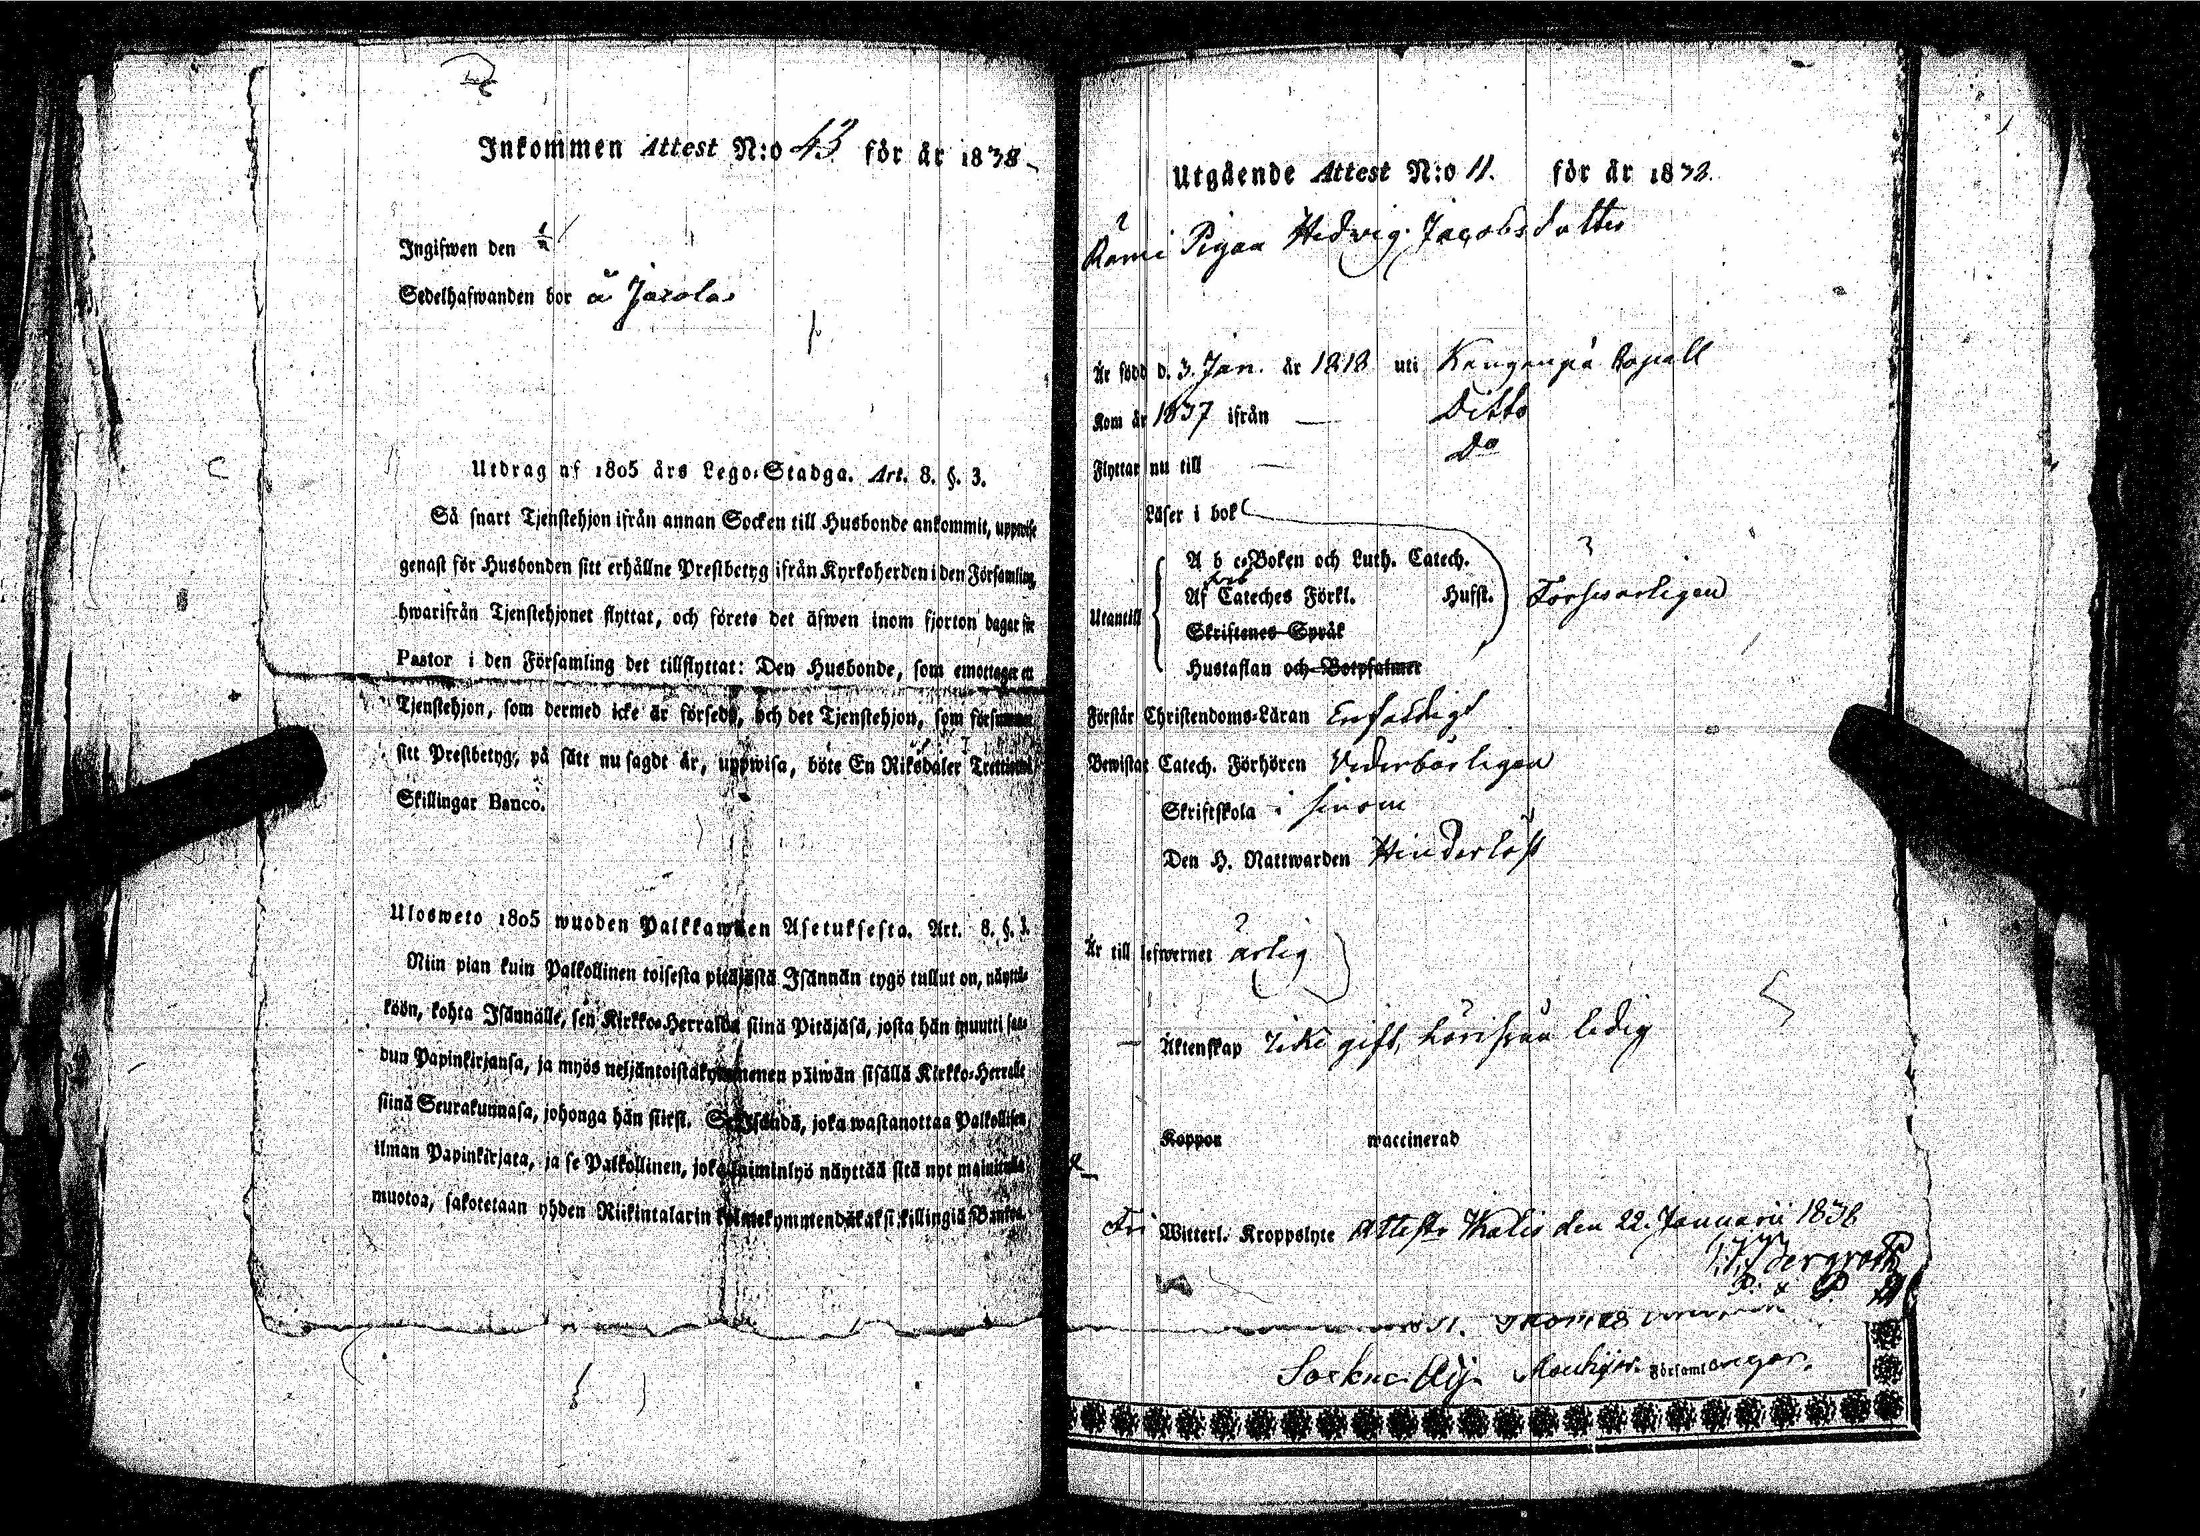 Inkommen Attest N:o 43 för år 1838
Ingifwen den
Sedelhafwanden bor å Jarola
Utdrag af 1805 års Lego-Stadga. Art. 8. §. 3.
Så snart Tjenstehjon ifrån annan Socken till Husbonde ankommit, uppwise
genast för Husbonden sitt erhållne Prestbetyg ifrån Kyrkoherden i den Församling,
hwarifrån Tjenstehjonet flyttat, och förete det äfwen inom fjorton dagar för
Pastor i den Församling det tillflyttat: Den Husbonde, som emottager ett
Tjenstehjon, som dermed icke är försedt, och det Tjenstehjon, som försummar
sitt Prestbetyg, på sätt nu sagdt är, uppwisa, böte En Riksdaler Trettiotwå
Skillingar Banco.
Ulosweto 1805 wuoden Palkkawäen Asetuksesta. Art. 8. §. 3.
Niin pian kuin Palkollinen toisesta pitäjästä Isännän tygö tullut on, näyttä-
köön, kohta Isännälle, sen Kirkko-Herralda siinä Pitäjäsä, josta hän muutti saa-
dun Papinkirjansa, ja myös neljäntoistakymmenen päiwän sisällä Kirkko-Herralle
siinä Seurakunnasa, johonga hän siirsi. Se Isändä, joka wastanottaa Palkollisen
ilman Papinkirjata, ja se Palkollinen, joka laiminlyö näyttää sitä nyt mainitulla
muotoa, sakotetaan yhden Riikintalarin kolmekymmendäkaksi killingiä Bankoa.
Utgående Attest N:o 11. för år 1838.
Pigan Hedwig Jacobsdotter
Är född d. 3. Jan. år 1818 uti Kangenpä Capell
Kom år 1837 ifrån — Ditto
Flyttar nu till — Do
Läser i bok
A b c-Boken och Luth. Catech.
Af Cateches Förkl. Husst. Försvarligen
Utantill
Skriftenes Språk
Hustaflan och Botpsalmer
Förstår Christendoms-Läran Enfaldigt
Bewistat Catech. Förhören Vederbörligen
Skriftskola i
Den H. Nattwarden Hinderlöst
Är till lefwernet ärlig
Äktenskap Icke gift, härifrån ledig
Koppor waccinerad
Fri Witterl. Kroppslyte Attest. Ikalis den 22. Januarii 1838
Församl